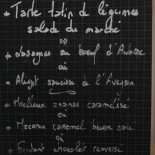 * Tarte tatin de légumes
salade du marché
ou
* Lasagnes au boeuf d'Aubrac
ou
* Aligot saucisse d'Aveyron
* Moelleux ananas caramélisé
ou
* Macaron caramel beurre salé
ou
* Fondant chocolat